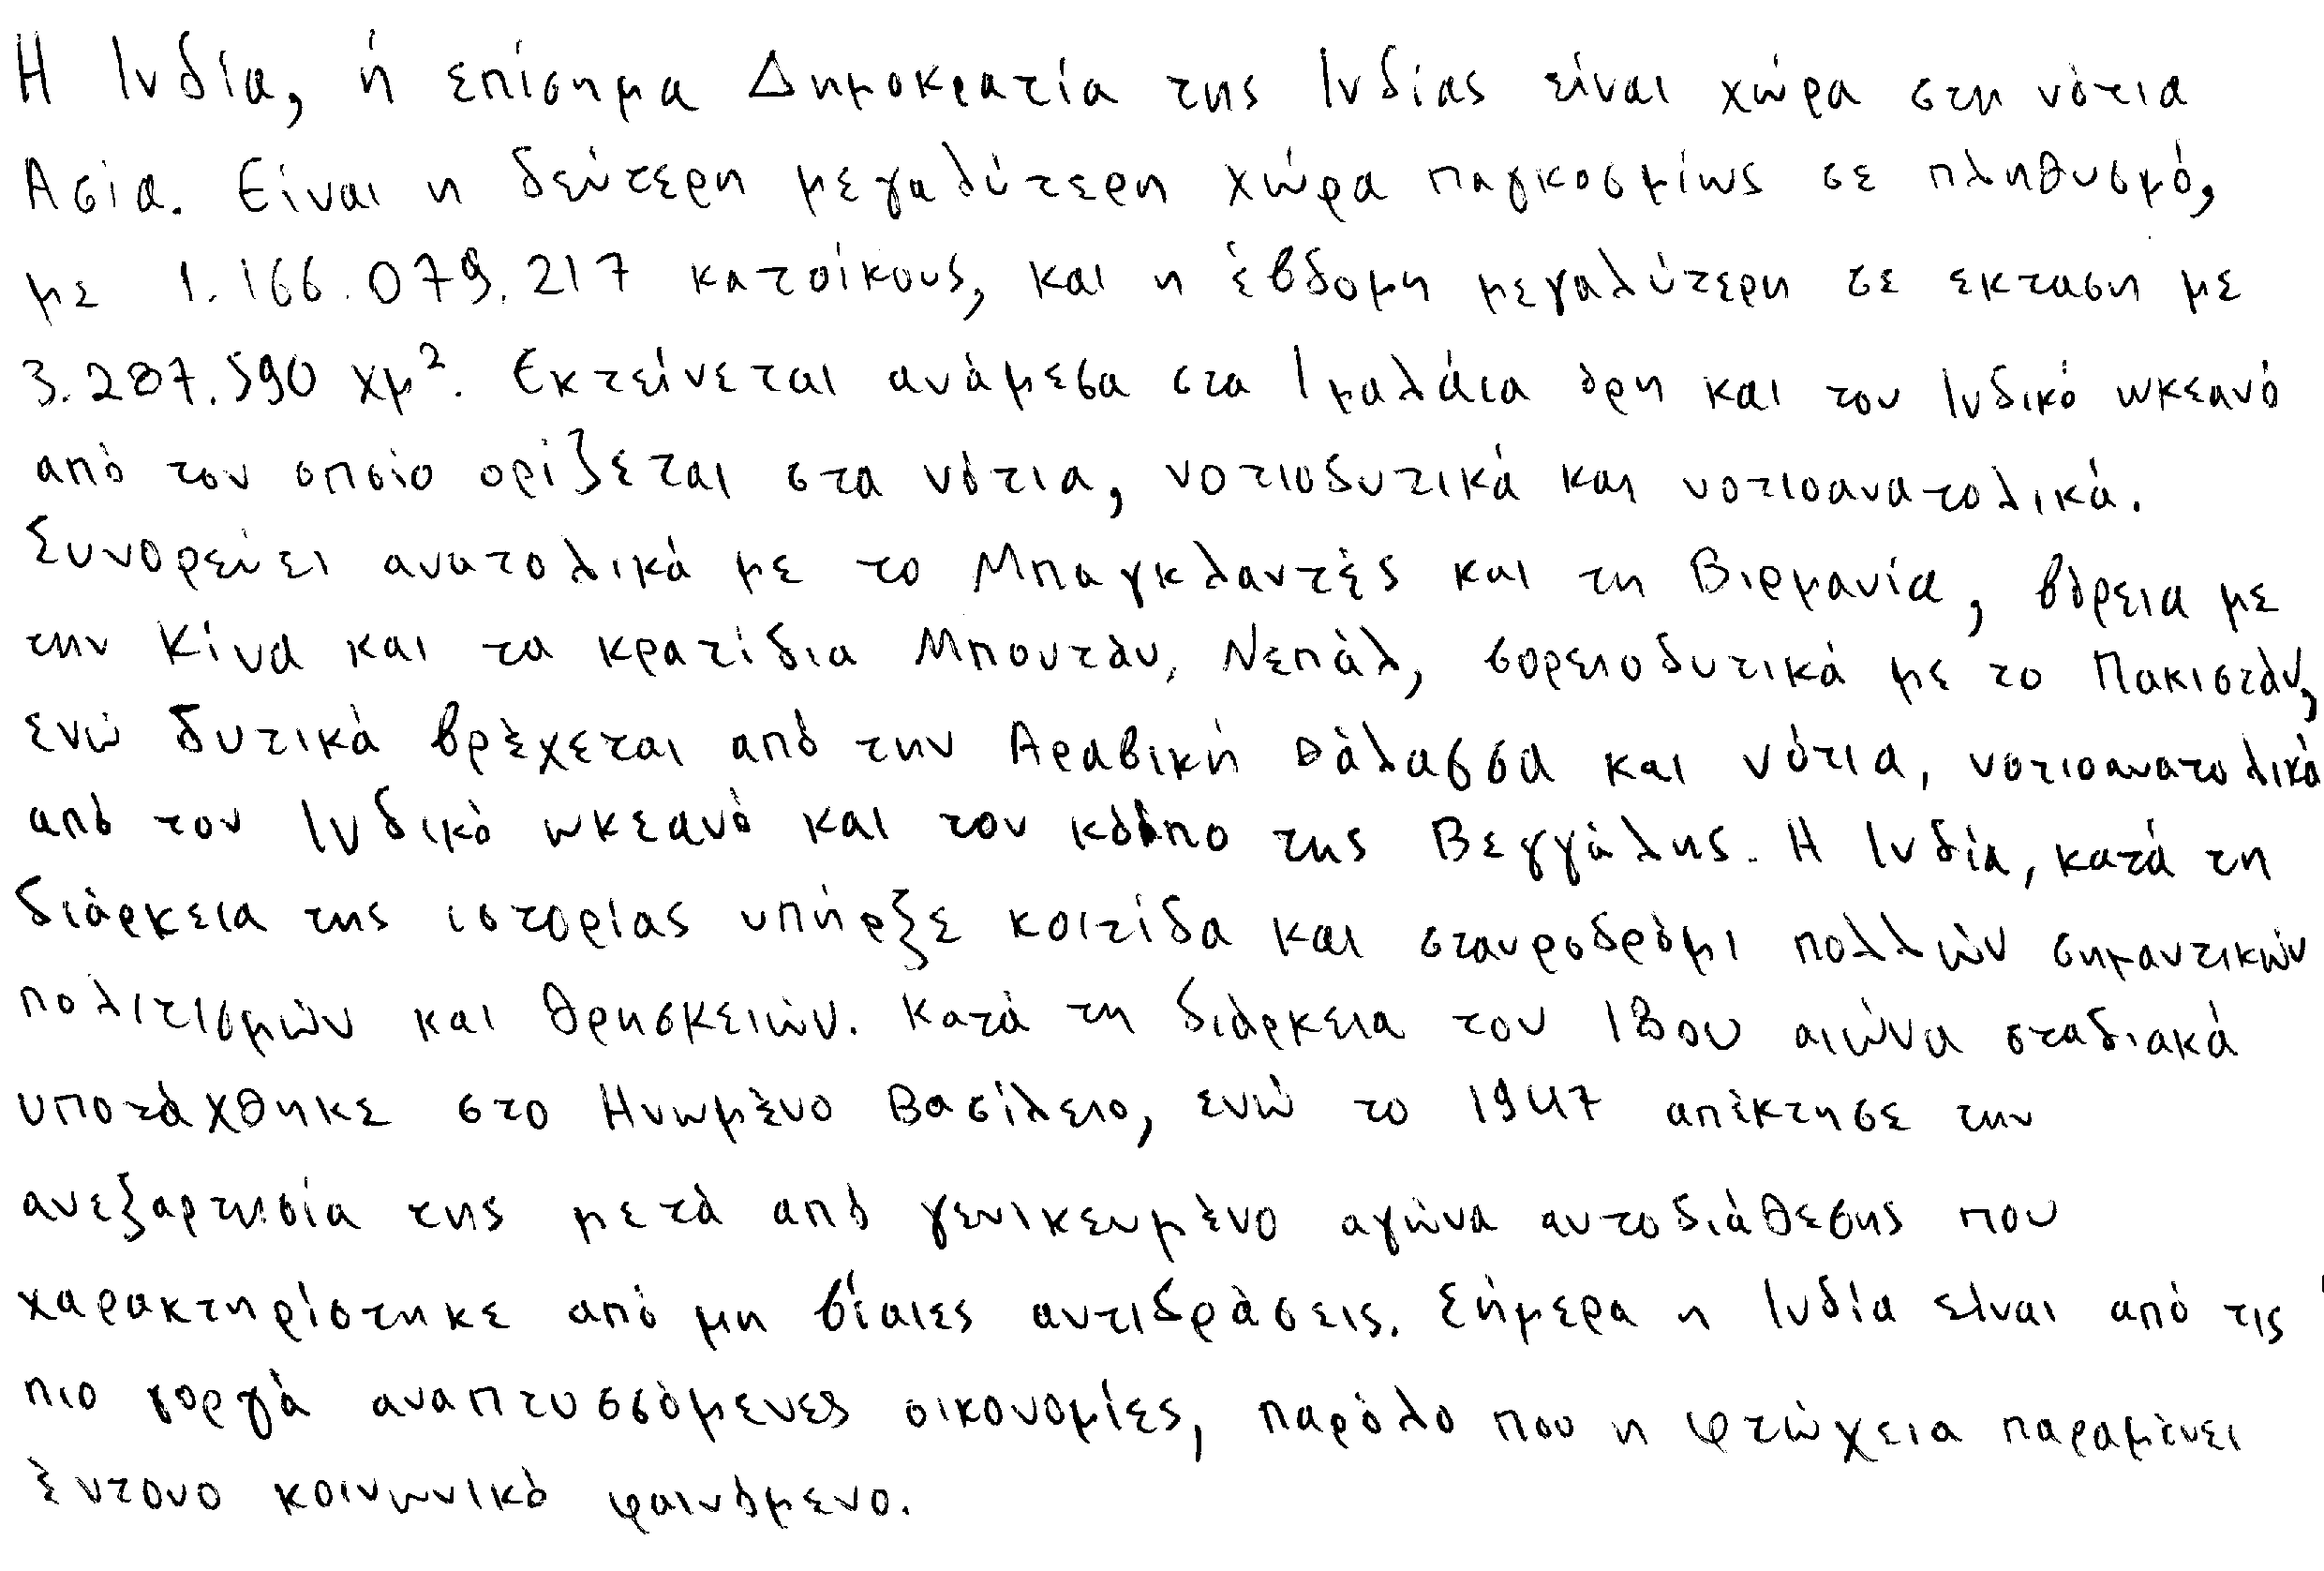 Η Ινδία, ή επίσημα Δημοκρατία της Ινδίας είναι χώρα στη νότια
Ασία. Είναι η δεύτερη μεγαλύτερη χώρα παγκοσμίως σε πληθυσμό,
με 1.166.079.217 κατοίκους, και η έβδομη μεγαλύτερη σε εκταση με
3.287.590 χμ². Εκτείνεται ανάμεσα στα Ιμαλάια όρη και τον Ινδικό ωκεανό
από τον οποίο ορίζεται στα νότια, νοτιοδυτικά και νοτιοανατολικά.
Συνορεύει ανατολικά με το Μπαγκλαντές και τη Βιρμανία, βόρεια με
την Κίνα και τα κρατίδια Μπουτάν, Νεπάλ, βορειοδυτικά με το Πακιστάν,
ενώ δυτικά βρέχεται από την Αραβική θάλασσα και νότια, νοτιοανατολικά
από τον Ινδικό ωκεανό και τον κόλπο της Βεγγάλης. Η Ινδία, κατά τη
διάρκεια της ιστορίας υπήρξε κοιτίδα και σταυροδρόμι πολλών σημαντικών
πολιτισμών και θρησκειών. Κατά τη διάρκεια του 18ου αιώνα σταδιακά
υποτάχθηκε στο Ηνωμένο Βασίλειο, ενώ το 1947 απέκτησε την
ανεξαρτησία της μετά από γενικευμένο αγώνα αυτοδιάθεσης που
χαρακτηρίστηκε από μη βίαιες αντιδράσεις. Σήμερα η Ινδία είναι από τις
πιο γοργά αναπτυσσόμενες οικονομίες, παρόλο που η φτώχεια παραμένει
έντονο κοινωνικό φαινόμενο.